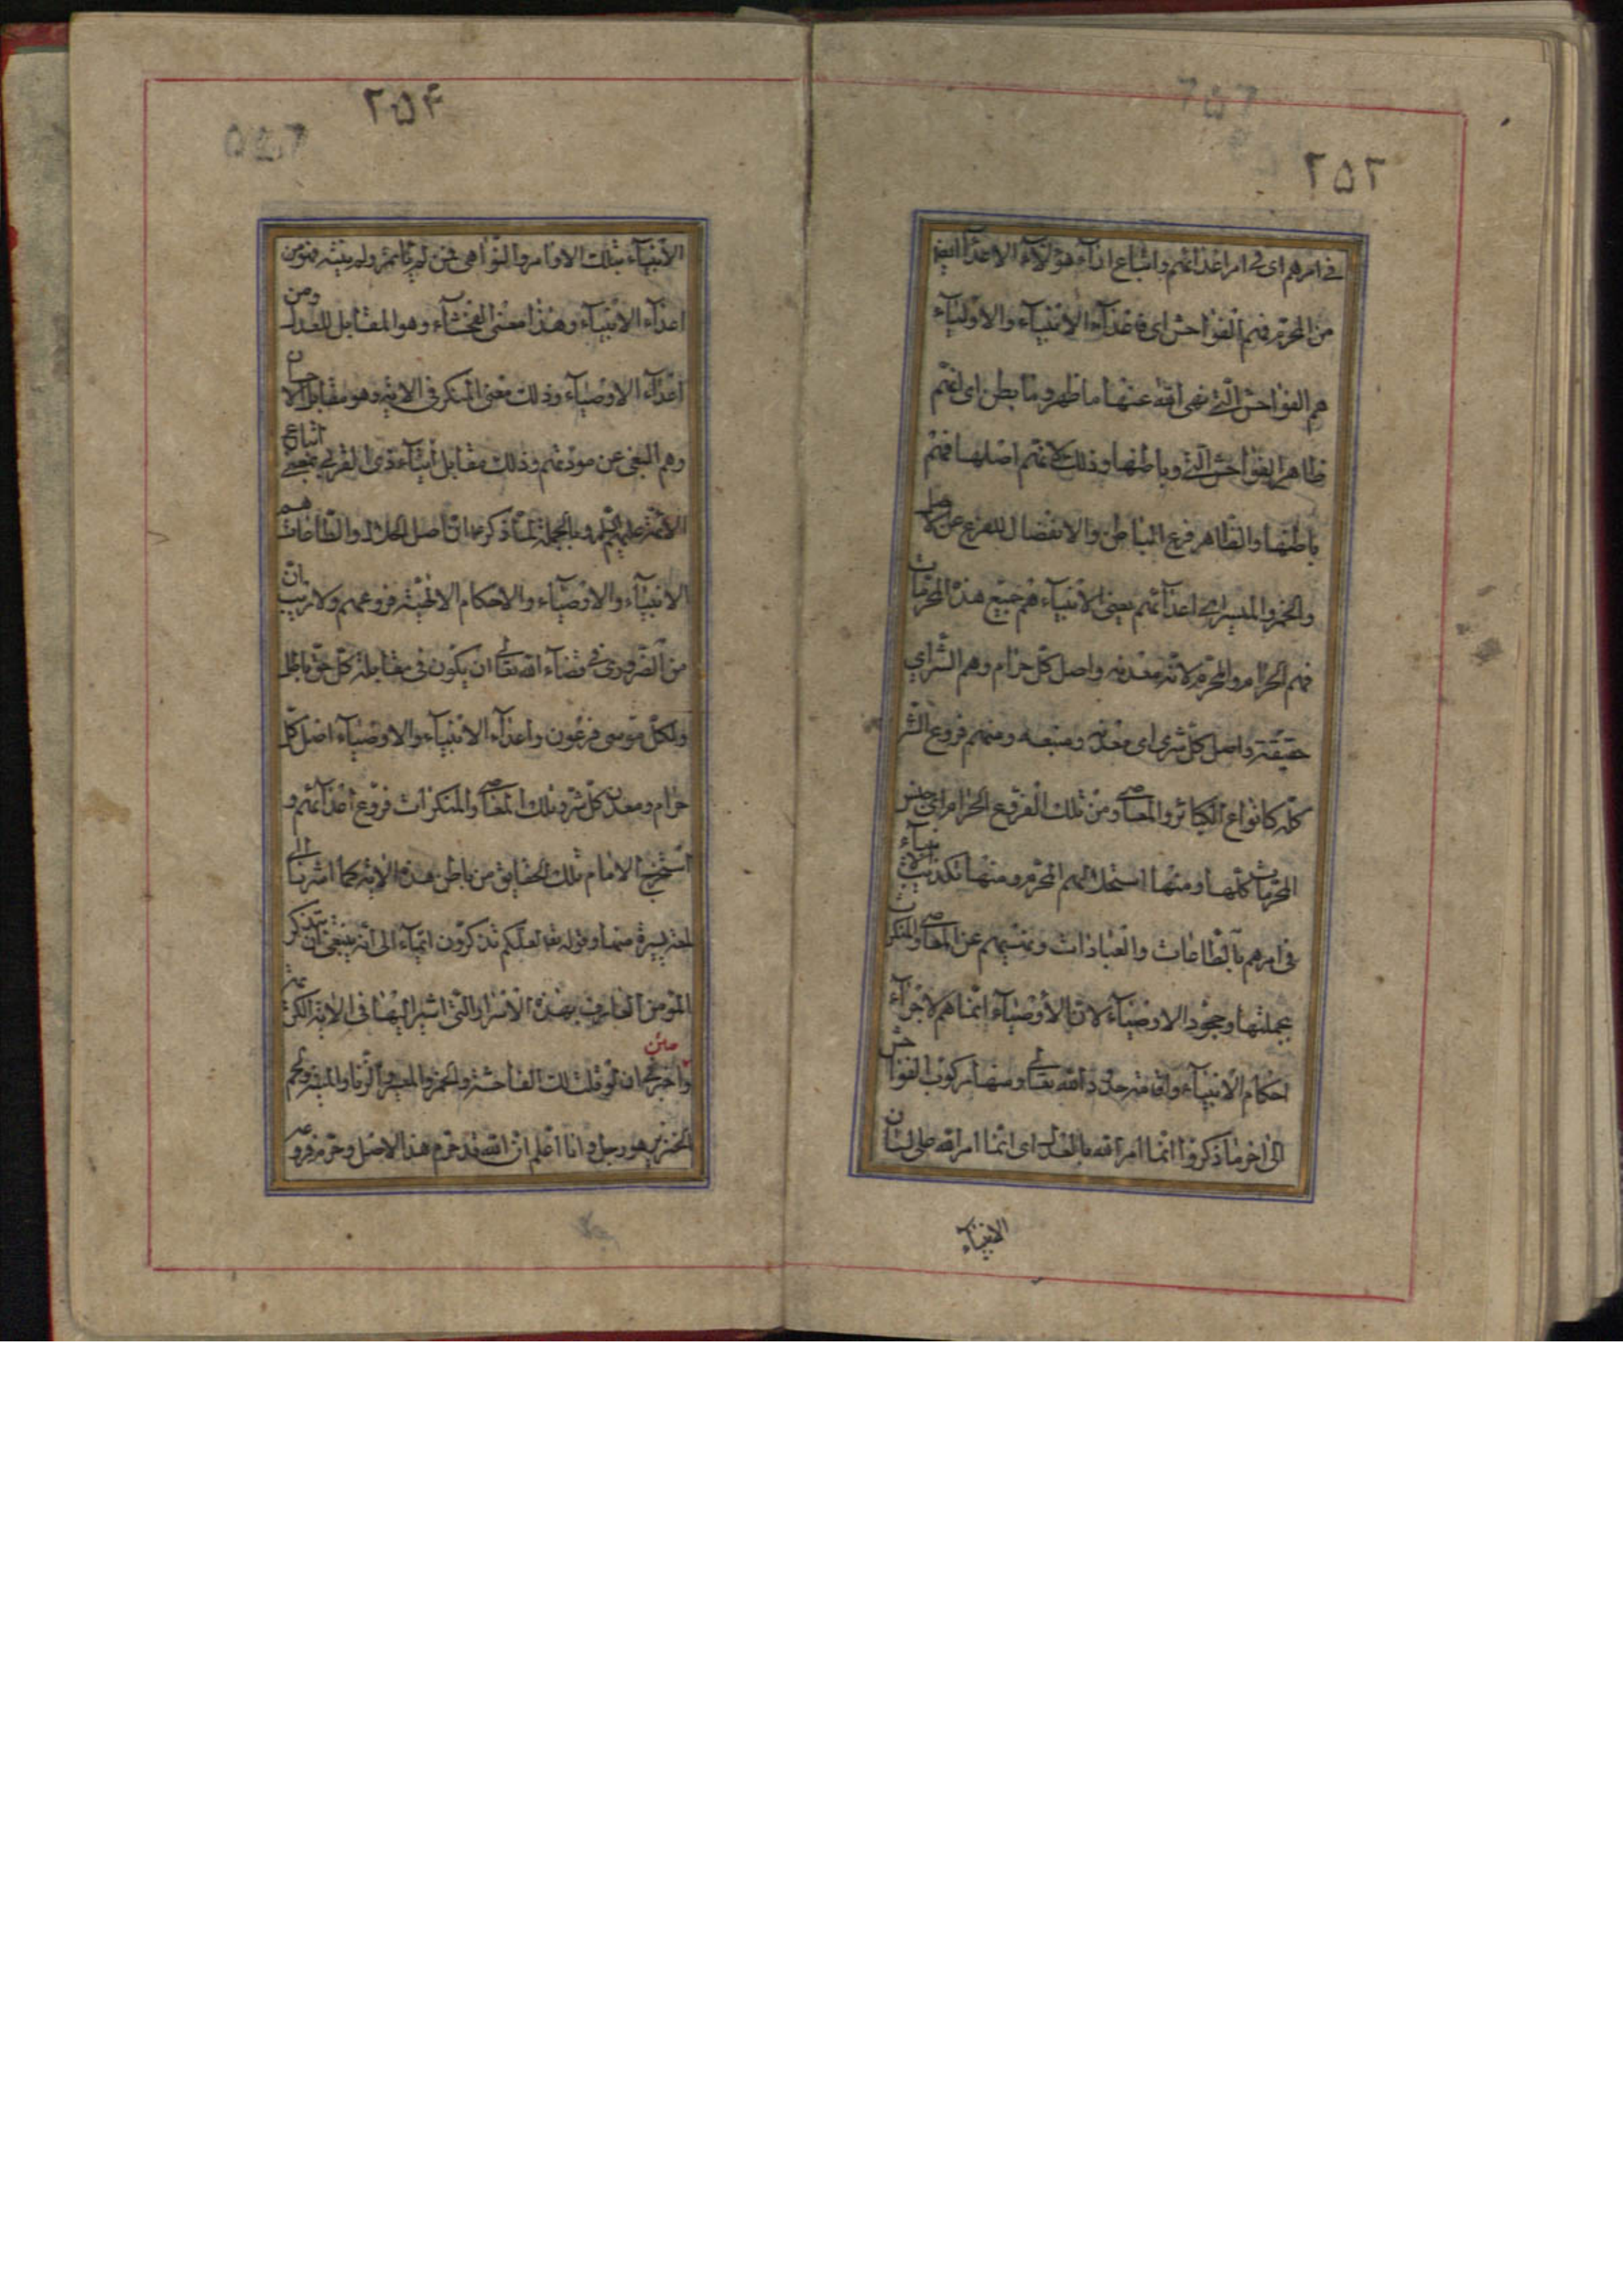 ٢۵٣
في امرهم اى في امر اعدائهم واتباع اراء هؤلاء الاعداء
من المحرّم فهم الفواحش اى فاعداء الانبياء والاولياء
هم الفواحش الّتي نهى الله عنها ما ظهر وما بطن اى انّهم
ظاهر الفواحش وباطنها وذلك لانّهم اصلها فهم
باطنها والظّاهر فرع الباطن والانفصال للفرع عن الاصل
والخمر والميسر اى اعدائهم يعنى الانبياء هم جميع هذه المحرّمات
فهم الحرام والمحرّم لانّه معدنه واصل كلّ حرام وهم الشّر اى
حقيقته واصل كلّ شرّ اى معدنه ومنبعه ومنهم فروع الشّر
كلّه كانواع الكبائر والمعاصى ومن تلك الفروع الحرام اى جنس
المحرّمات كلّها ومنها استحلالهم المحرّم ومنها تكذيب الانبياء
في امرهم بالطّاعات والعبادات ونهيهم عن المعاصى والمنكرات
بجملتها وجحود الاوصياء لانّ الاوصياء انّما هم لاجراء
احكام الانبياء واقامة حدود الله تعالى ومنها ركوب الفواحش
الى اخر ما ذكروا انّما امر الله بالعدل اى انّما امر الله على لسان
الانبياء
٢۵۴
الانبياء بتلك الاوامر والنّواهى فمن لم يأتمر ولم ينته فهو من
اعداء الانبياء وهذا معنى الفحشاء وهو المقابل للعدل ومن
اعداء الاوصياء وذلك معنى المنكر في الاية وهو مقابل الاحسان
وهم البغى عن مودّتهم وذلك مقابل ايتاء ذى القربى بمعنى اتباع
الائمة عليهم وبالجملة لمّا ذكر انّ اصل العدل والطّاعات هم
الانبياء والاوصياء والاحكام الالهيّة فروعهم ولا ريب بانّ
من الضّرورى في قضاء الله تعالى ان يكون في مقابلة كلّ حقّ باطل
ولكلّ موسى فرعون واعداء الانبياء والاوصياء اصل كلّ
حرام ومعدن كلّ شرّ وتلك المعاصى والمنكرات فروع اعدائهم و
استخرج الامام تلك الحقايق من باطن هذه الاية كما اشرنا الى
لمعة يسيرة منها وقوله تعا لعلّكم تذكّرون ايماء الى انّه ينبغى ان يتذكّر
المؤمن العارف بهذه الاسرار الّتى اشير اليها في الاية الكريمة
متن
واخبرك انّى لو قلت لك الفاحشة والخمر والميسر والزّنا والميتة والدم ولحم
الخنزير هو رجل وانا اعلم انّ الله قد حرّم هذا الاصل وحرّم فروعه